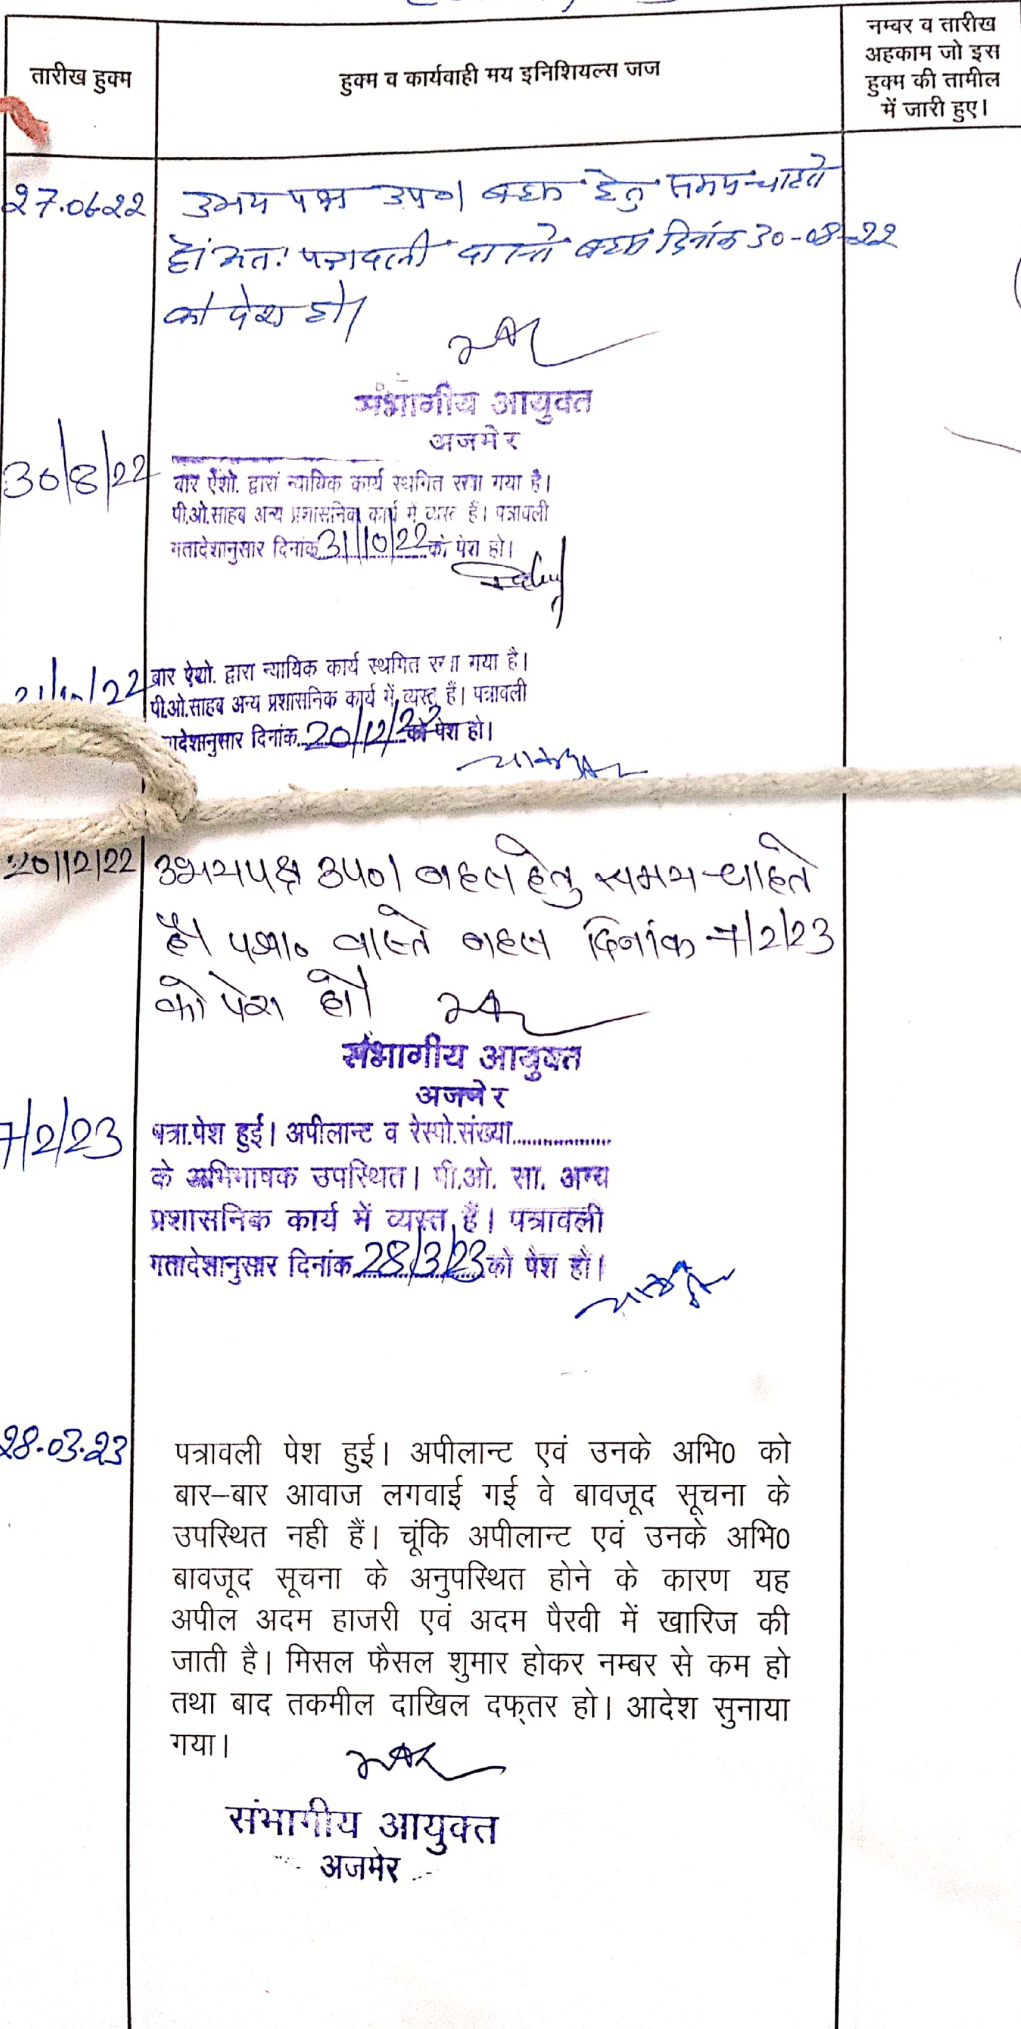 तारीख हुक्म
हुक्म व कार्यवाही मय इनिशियल्स जज
नम्बर व तारीख
अहकाम जो इस
हुक्म की तामील
में जारी हुए।
27.06.22
उभय पक्ष उप०। बहस हेतु समय चाहते
हैं। अतः पत्रावली वास्ते बहस दिनांक 30-08-22
को पेश हो।
संभागीय आयुक्त
अजमेर
30/8/22
बार ऐशो. द्वारा न्यायिक कार्य स्थगित रखा गया है।
पी.ओ.साहब अन्य प्रशासनिक कार्य में व्यस्त हैं। पत्रावली
गतादेशानुसार दिनांक 31/10/22 को पेश हो।
31/10/22
बार ऐशो. द्वारा न्यायिक कार्य स्थगित रखा गया है।
पी.ओ.साहब अन्य प्रशासनिक कार्य में व्यस्त हैं। पत्रावली
गतादेशानुसार दिनांक 20/12/22 को पेश हो।
20/12/22
उभयपक्ष उप०। बहस हेतु समय चाहते
हैं। पत्रा० वास्ते बहस दिनांक 7/2/23
को पेश हो।
संभागीय आयुक्त
अजमेर
7/2/23
पत्रा.पेश हुई। अपीलान्ट व रेस्पो.संख्या..................
के अभिभाषक उपस्थित। पी.ओ. सा. अन्य
प्रशासनिक कार्य में व्यस्त हैं। पत्रावली
गतादेशानुसार दिनांक 28/3/23 को पेश हो।
28.03.23
पत्रावली पेश हुई। अपीलान्ट एवं उनके अभि0 को
बार–बार आवाज लगवाई गई वे बावजूद सूचना के
उपस्थित नही हैं। चूंकि अपीलान्ट एवं उनके अभि0
बावजूद सूचना के अनुपस्थित होने के कारण यह
अपील अदम हाजरी एवं अदम पैरवी में खारिज की
जाती है। मिसल फैसल शुमार होकर नम्बर से कम हो
तथा बाद तकमील दाखिल दफ्तर हो। आदेश सुनाया
गया।
संभागीय आयुक्त
अजमेर